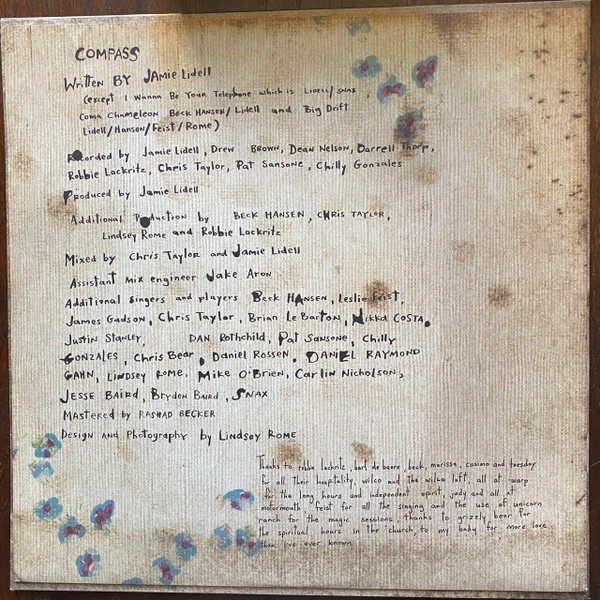 COMPASS
Written BY Jamie Lidell
(except I Wanna Be Your Telephone which is Lidell/Snax,
Coma Chameleon Beck Hansen/Lidell and Big Drift
Lidell/Hansen/Feist/Rome)
Recorded by Jamie Lidell, Drew Brown, Dean Nelson, Darrell Thorp,
Robbie Lackritz, Chris Taylor, Pat Sansone, Chilly Gonzales
Produced by Jamie Lidell
Additional Production by Beck Hansen, Chris Taylor,
Lindsey Rome and Robbie Lackritz
Mixed by Chris Taylor and Jamie Lidell
Assistant mix engineer Jake Aron
Additional singers and players Beck Hansen, Leslie Feist,
James Gadson, Chris Taylor, Brian LeBarton, Nikka Costa,
Justin Stanley, Dan Rothchild, Pat Sansone, Chilly
Gonzales, Chris Bear, Daniel Rossen, Daniel Raymond
Gahn, Lindsey Rome, Mike O'Brien, Carlin Nicholson,
Jesse Baird, Bryden Baird, Snax
Mastered by Rashad Becker
Design and Photography by Lindsey Rome
Thanks to robbie lackritz, bart de baere, beck, marissa, cosimo and tuesday
for all their hospitality, wilco and the wilco loft, all at warp
for the long hours and independent spirit, judy and all at
motormouth, feist for all the singing and the use of unicorn
ranch for the magic sessions, thanks to grizzly bear for
the spiritual hours in the church, to my baby for more love
than i've ever known